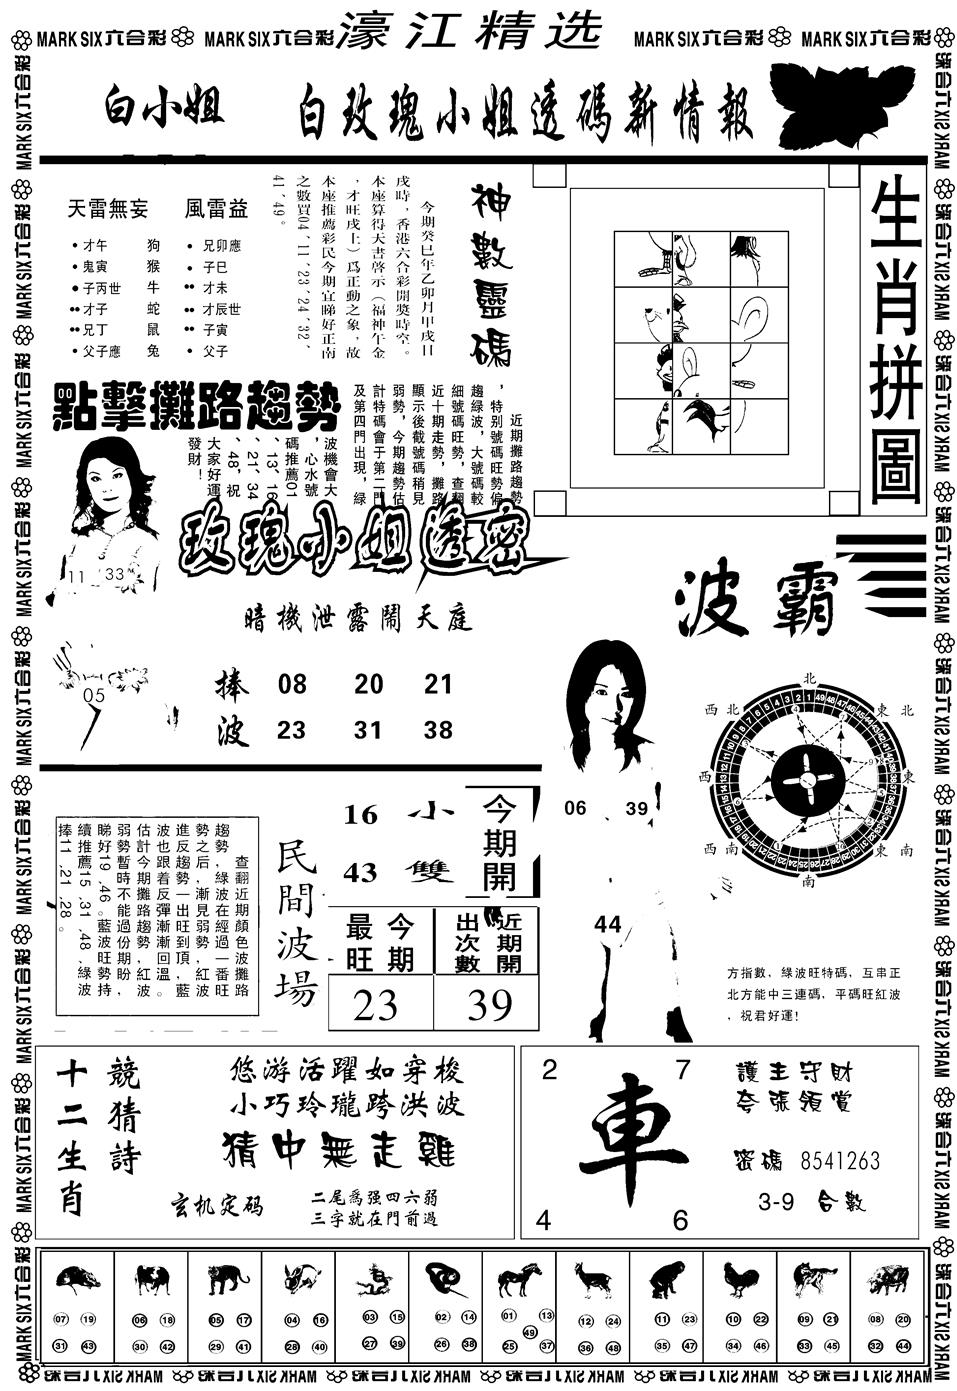 濠江精选
MARK SIX六合彩 MARK SIX六合彩 MARK SIX六合彩 MARK SIX六合彩
白小姐 白玫瑰小姐透碼新情報
天雷無妄 風雷益
才午 狗
鬼寅 猴
子丙世 牛
才子 蛇
兄丁 鼠
父子應 兔
兄卯應
子巳
才未
才辰世
子寅
父子
神數靈碼
今期癸巳年乙卯月甲戌日
戌時，香港六合彩開獎時空。
本座算得天書啓示（福神午金
，才旺戌土）爲正動之象，故
本座推薦彩民今期宜睇好正南
之數買04、11、23、24、32、
41、49。
生肖拼圖
點擊攤路趨勢
近期攤路趨勢
，特别號碼旺勢偏
趨綠波，大號碼較
細號碼旺勢，查翻
近十期走勢，攤路
顯示後截號碼稍見
弱勢，今期趨勢估
計特碼會于第二門
及第四門出現，綠
波機會大
，心水號
碼推薦01
、13、16
、21、34
、48，祝
大家好運
發財！
玫瑰小姐透密
11 33
05
暗機泄露鬧天庭
捧 08 20 21
波 23 31 38
波霸
北
西北 東北
西 東
西南 東南
南
06 39
44
方指數，綠波旺特碼，互串正
北方能中三連碼，平碼旺紅波
，祝君好運！
查翻近期顏色波攤路
趨勢，綠波在經過一番旺
勢之后，漸見弱勢，紅波
進反趨勢一出旺到頂，藍
波也跟着反彈漸漸回溫。
估計今期攤路趨勢，紅波
弱勢暫時不能過份期盼，
睇好19、46。藍波旺勢持
續推薦15、31、48，綠波
捧11、21、28。
民間波場
16 小
43 雙
今期開
今期最旺
近期開出次數
23 39
十二生肖
競猜詩
悠游活躍如穿梭
小巧玲瓏跨洪波
猜中無走雞
玄机定码
二尾爲强四六弱
三字就在門前過
2 7
車
4 6
護主守財
夸張領賞
密碼 8541263
3-9 合數
07 19 31 43
06 18 30 42
05 17 29 41
04 16 28 40
03 15 27 39
02 14 26 38
01 13 49 25 37
12 24 36 48
11 23 35 47
10 22 34 46
09 21 33 45
08 20 32 44